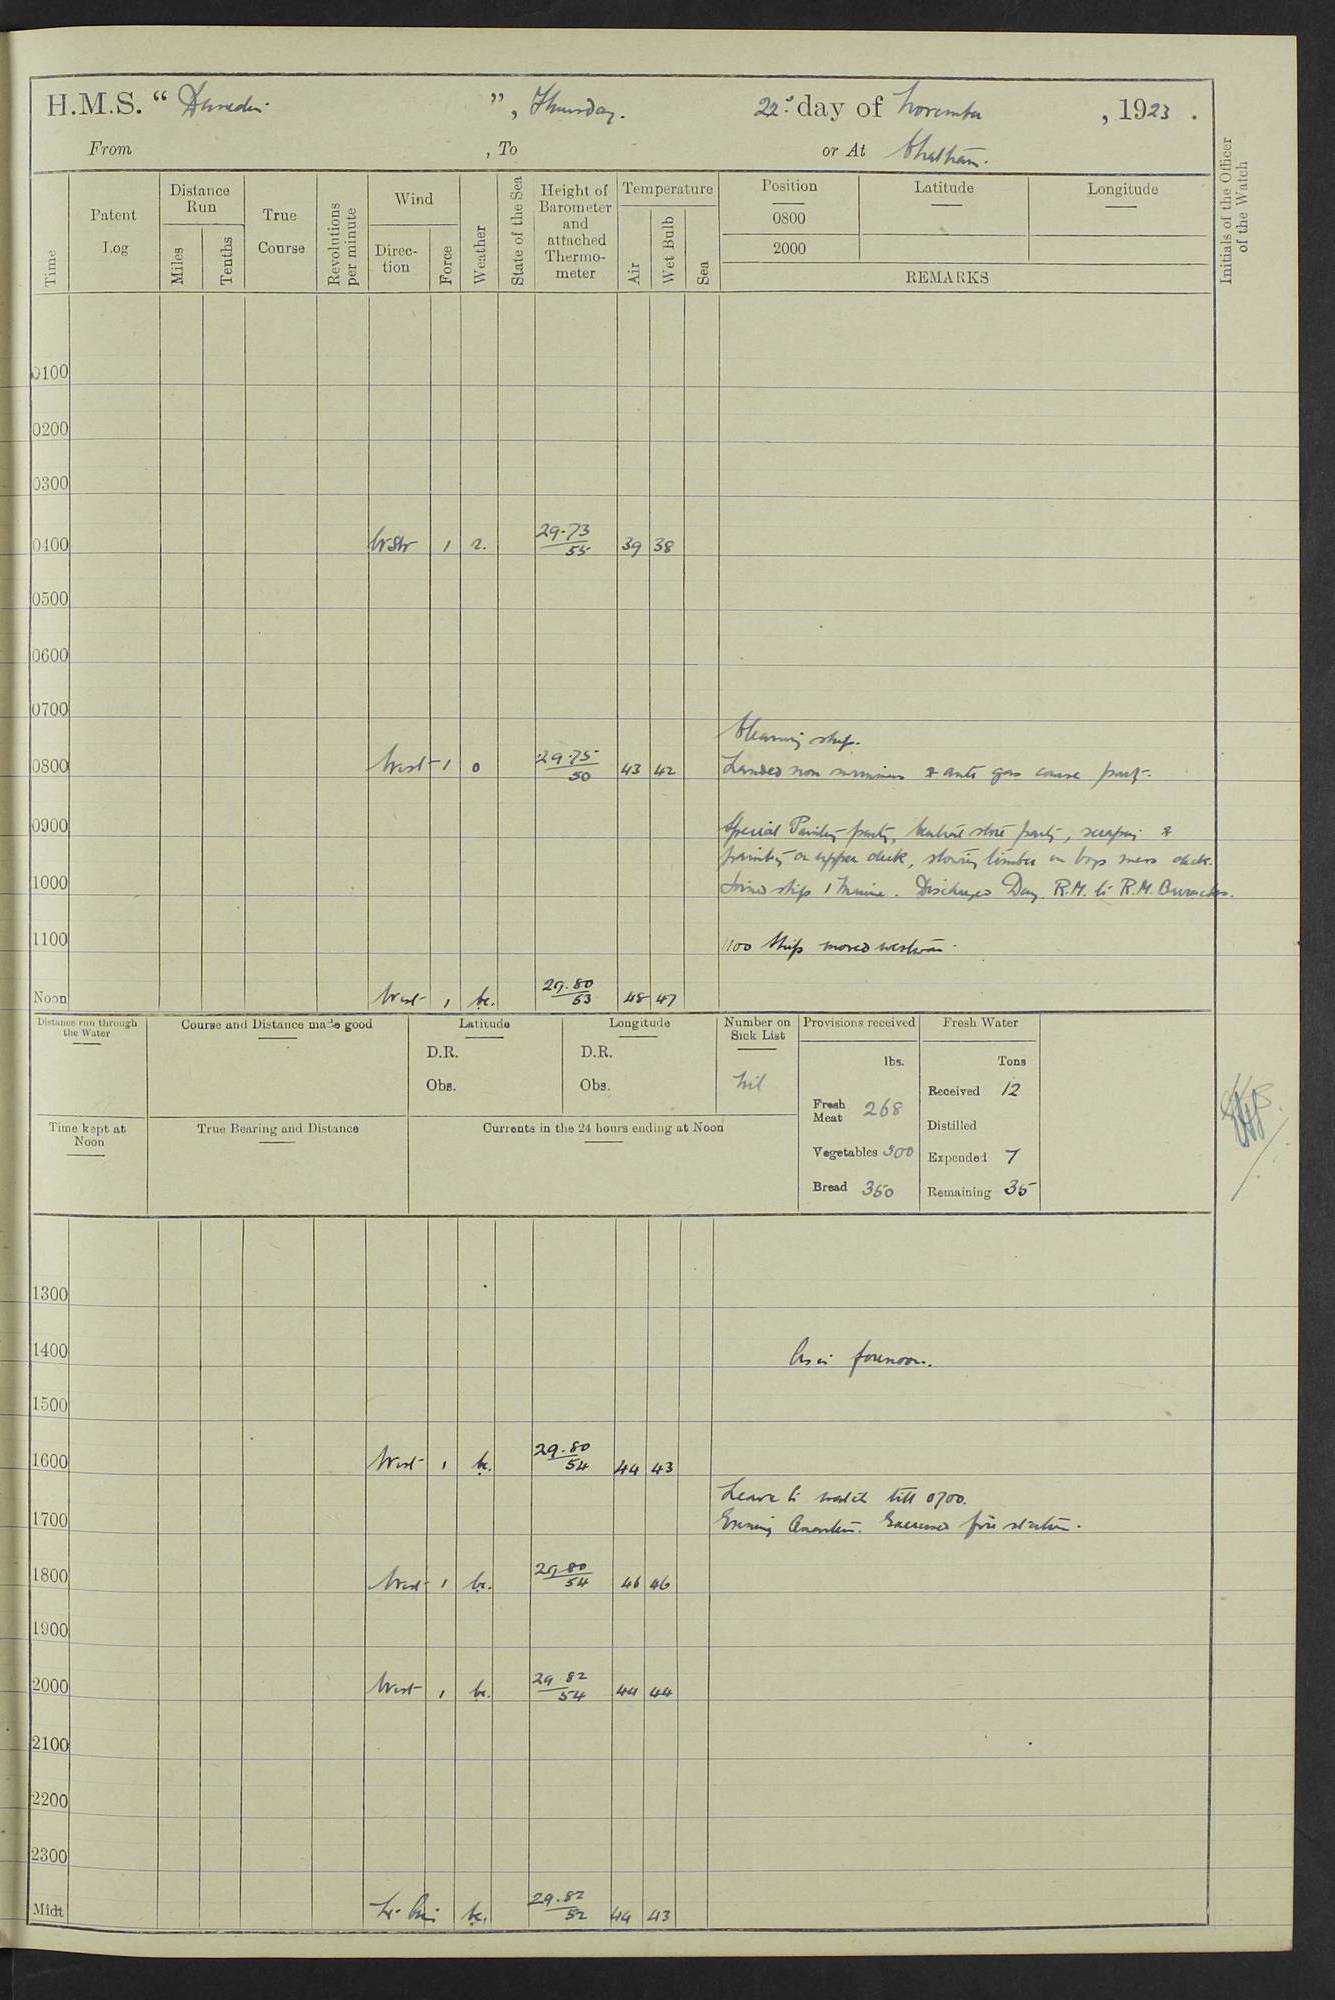 H.M.S. “ Dunedin ”, Thursday. 22d day of November, 1923.
From , To or At Chatham.
Time
Patent Log
Distance Run
Miles
Tenths
True Course
Revolutions per minute
Wind
Direction
Force
Weather
State of the Sea
Height of Barometer and attached Thermometer
Temperature
Air
Wet Bulb
Sea
Position
0800
2000
Latitude
Longitude
REMARKS
Initials of the Officer of the Watch
0100
0200
0300
0400 1 29.73/55 39 38
0500
0600
0700
Cleaning ship.
0800 West 1 o 29.75/50 43 42 Landed non swimmers & anti gas course party.
0900 Special Painting party, Central store party, scraping &
painting on upper deck, stowing timber on boys mess deck.
1000 Joined ship 1 Marine. Discharged Day R.M. to R.M. Barracks.
1100 1100 Ship moved
Noon West 1 bc. 29.80/53 48 47
Distance run through the Water
Course and Distance made good
Latitude
D.R.
Obs.
Longitude
D.R.
Obs.
Number on Sick List
Nil
Provisions received
lbs.
Fresh Meat 268
Vegetables 500
Bread 350
Fresh Water
Tons
Received 12
Distilled
Expended 7
Remaining 35
Time kept at Noon
True Bearing and Distance
Currents in the 24 hours ending at Noon
1300
1400 As in forenoon.
1500
1600 West 1 bc. 29.80/54 44 43
Leave to watch till 0700.
1700 Evening Quarters. Exercised fire stations.
1800 West 1 bc. 29.80/54 46 46
1900
2000 West 1 bc. 29.82/54 44 44
2100
2200
2300
Midt Lt. Airs bc. 29.82/52 44 43